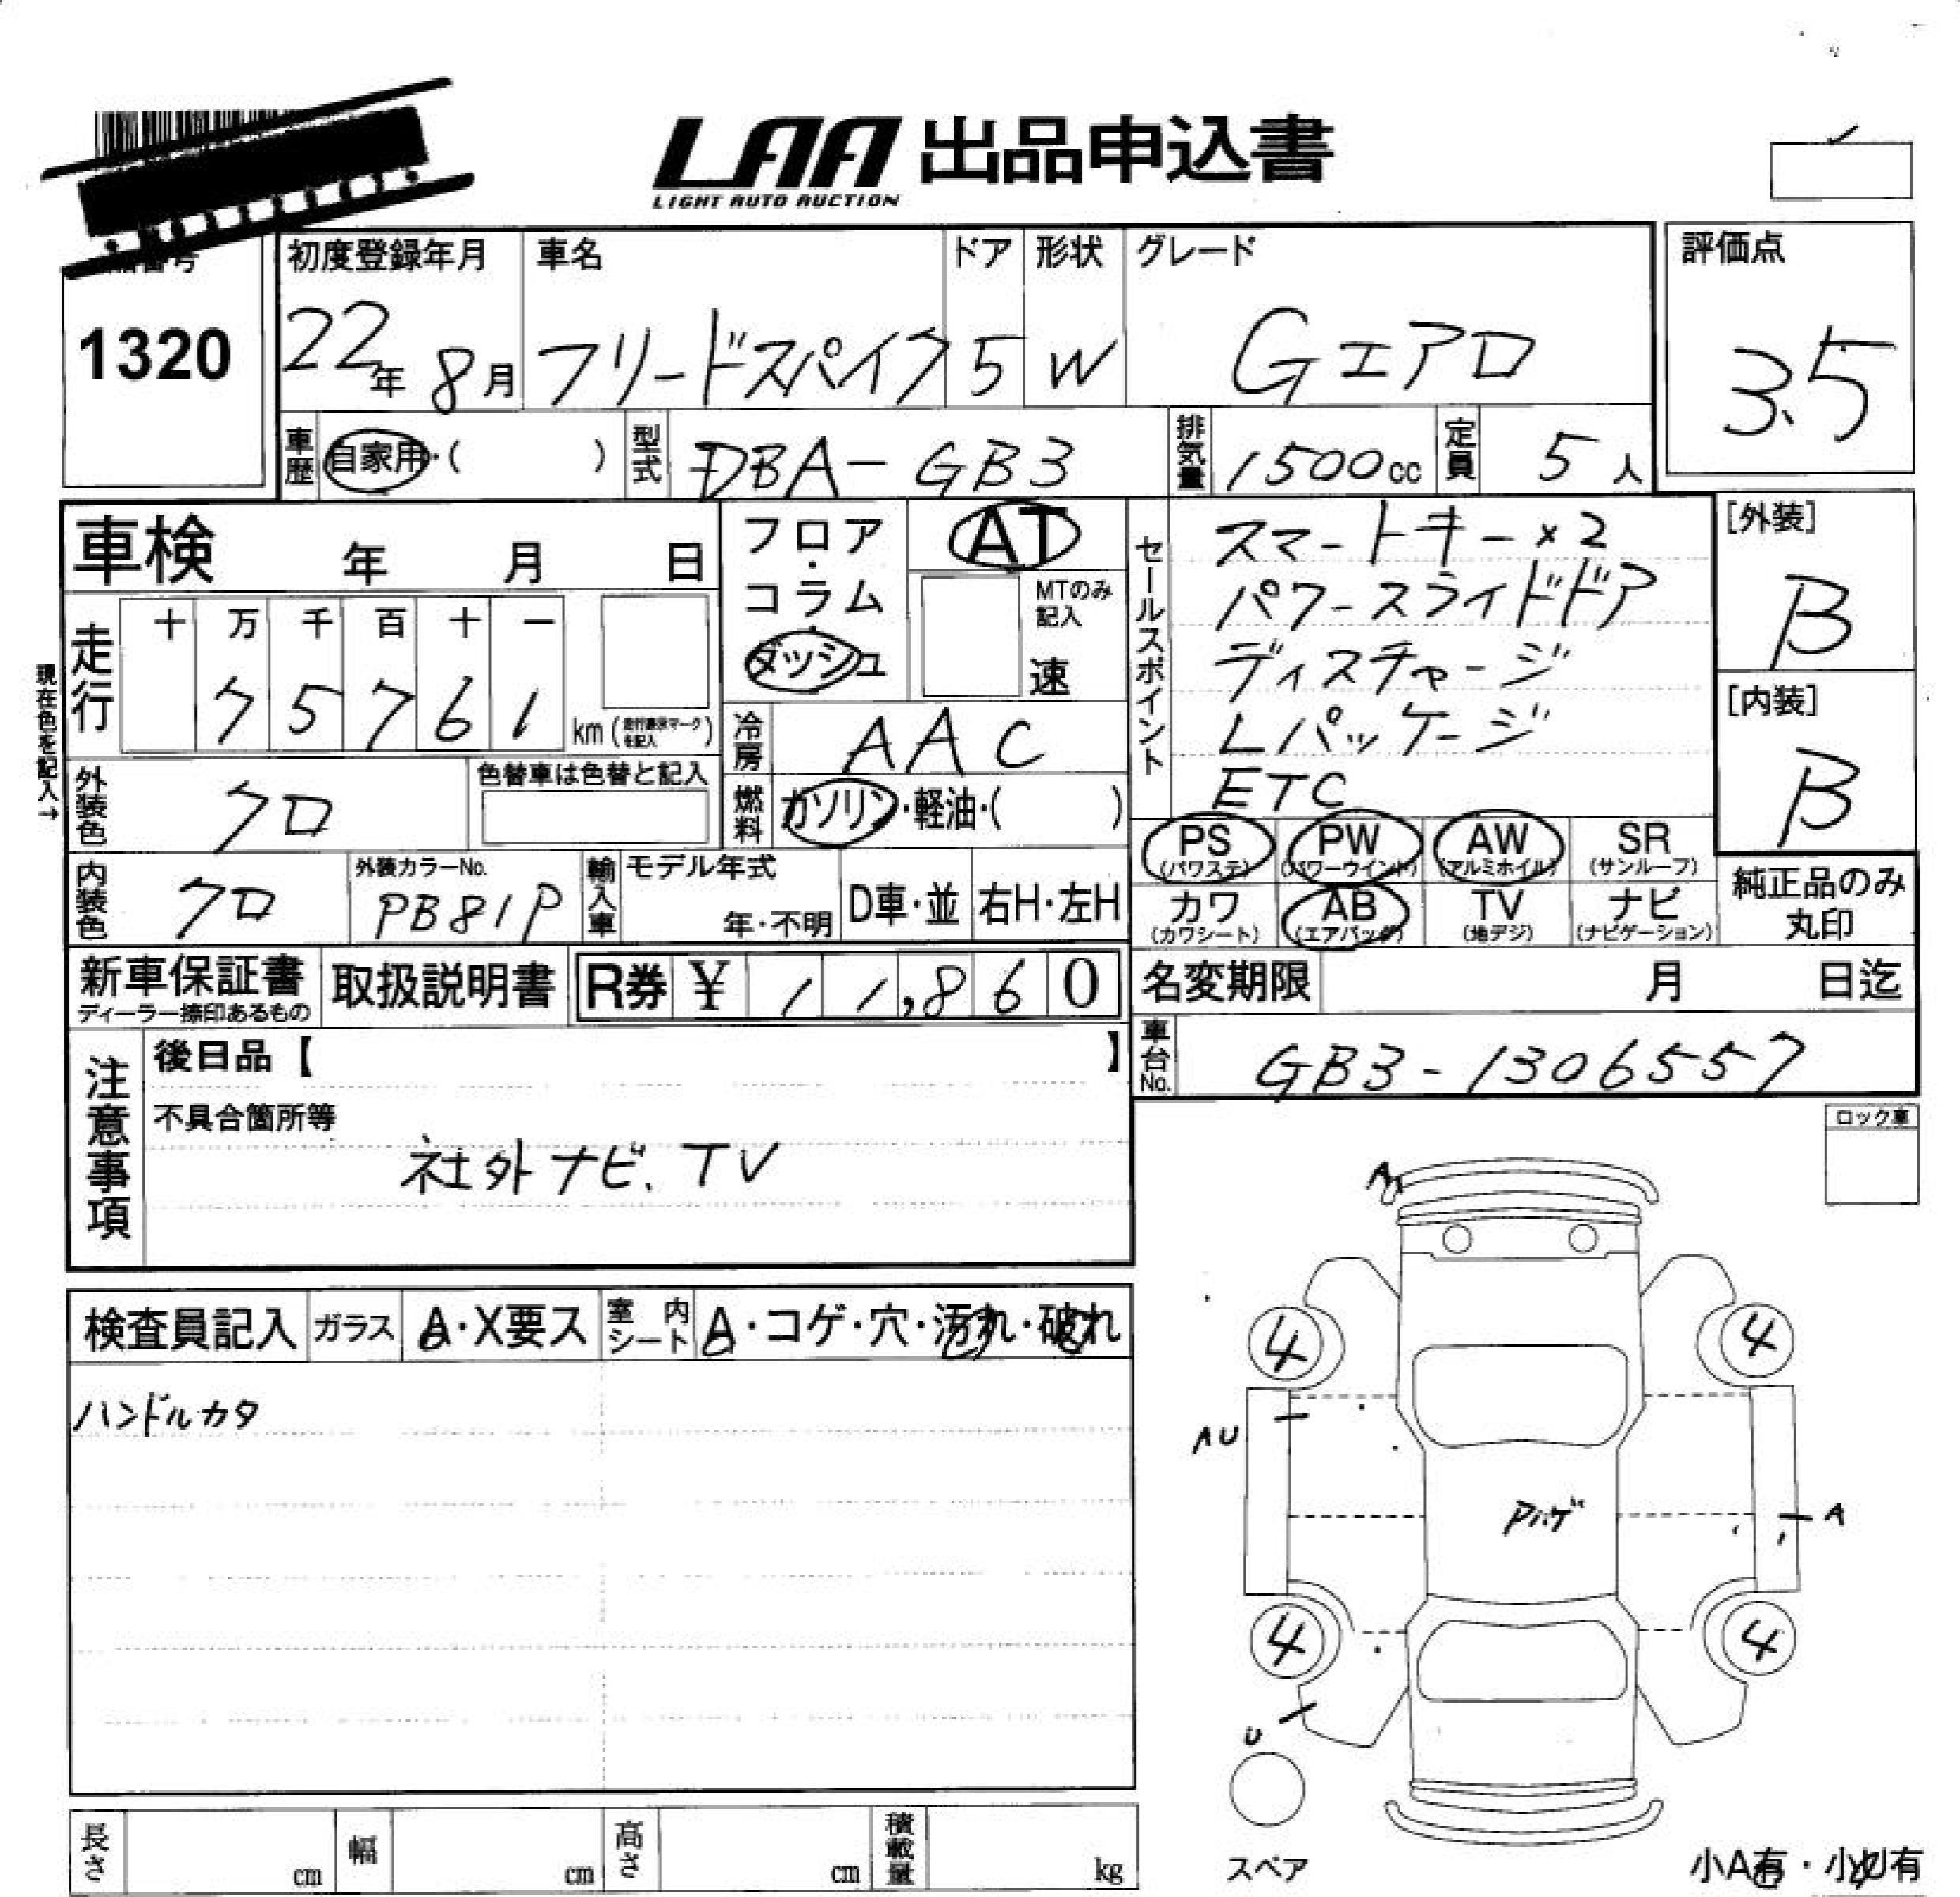 LAA 出品申込書
LIGHT AUTO AUCTION
1320
初度登録年月 車名 ドア 形状 グレード 評価点
22年 8月 フリードスパイク 5 W Gエアロ 3.5
車歴 自家用・( ) 型式 DBA-GB3 排気量 1500cc 定員 5人
車検 年 月 日
フロア・コラム・ダッシュ
AT
MTのみ記入
速
セールスポイント
スマートキー×2
パワースライドドア
ディスチャージ
Lパッケージ
ETC
[外装]
B
[内装]
B
現在色を記入→
走行 十 万 千 百 十 一
7 5 7 6 1 km (走行表示マークを記入)
冷房 AAC
外装色 クロ 色替車は色替と記入
燃料 ガソリン・軽油・( )
PS (パワステ) PW (パワーウインド) AW (アルミホイル) SR (サンルーフ)
カワ (カワシート) AB (エアバッグ) TV (地デジ) ナビ (ナビゲーション)
純正品のみ丸印
内装色 クロ 外装カラーNo. PB81P 輸入車 モデル年式 年・不明 D車・並 右H・左H
新車保証書 ディーラー捺印あるもの 取扱説明書 R券 ¥ 11,860
名変期限 月 日迄
車台No. GB3-1306557
注意事項
後日品【 】
不具合箇所等
社外ナビ、TV
ロック車
検査員記入 ガラス A・X要ス 室内シート A・コゲ・穴・汚れ・破れ
ハンドルカタ
A
4 4
AU
Pハゲ
A
4 4
U
スペア
小A有・小U有
長さ cm 幅 cm 高さ cm 積載量 kg